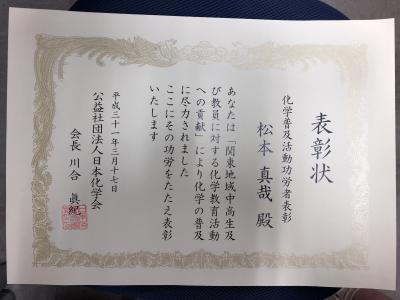 表彰状
化学普及活動功労者表彰
松本 真哉 殿
あなたは「関東地域中高生及
び教員に対する化学教育活動
への貢献」により化学の普及
に尽力されました
ここにその功労をたたえ表彰
いたします
平成三十一年三月十七日
公益社団法人日本化学会
会長 川合 眞紀